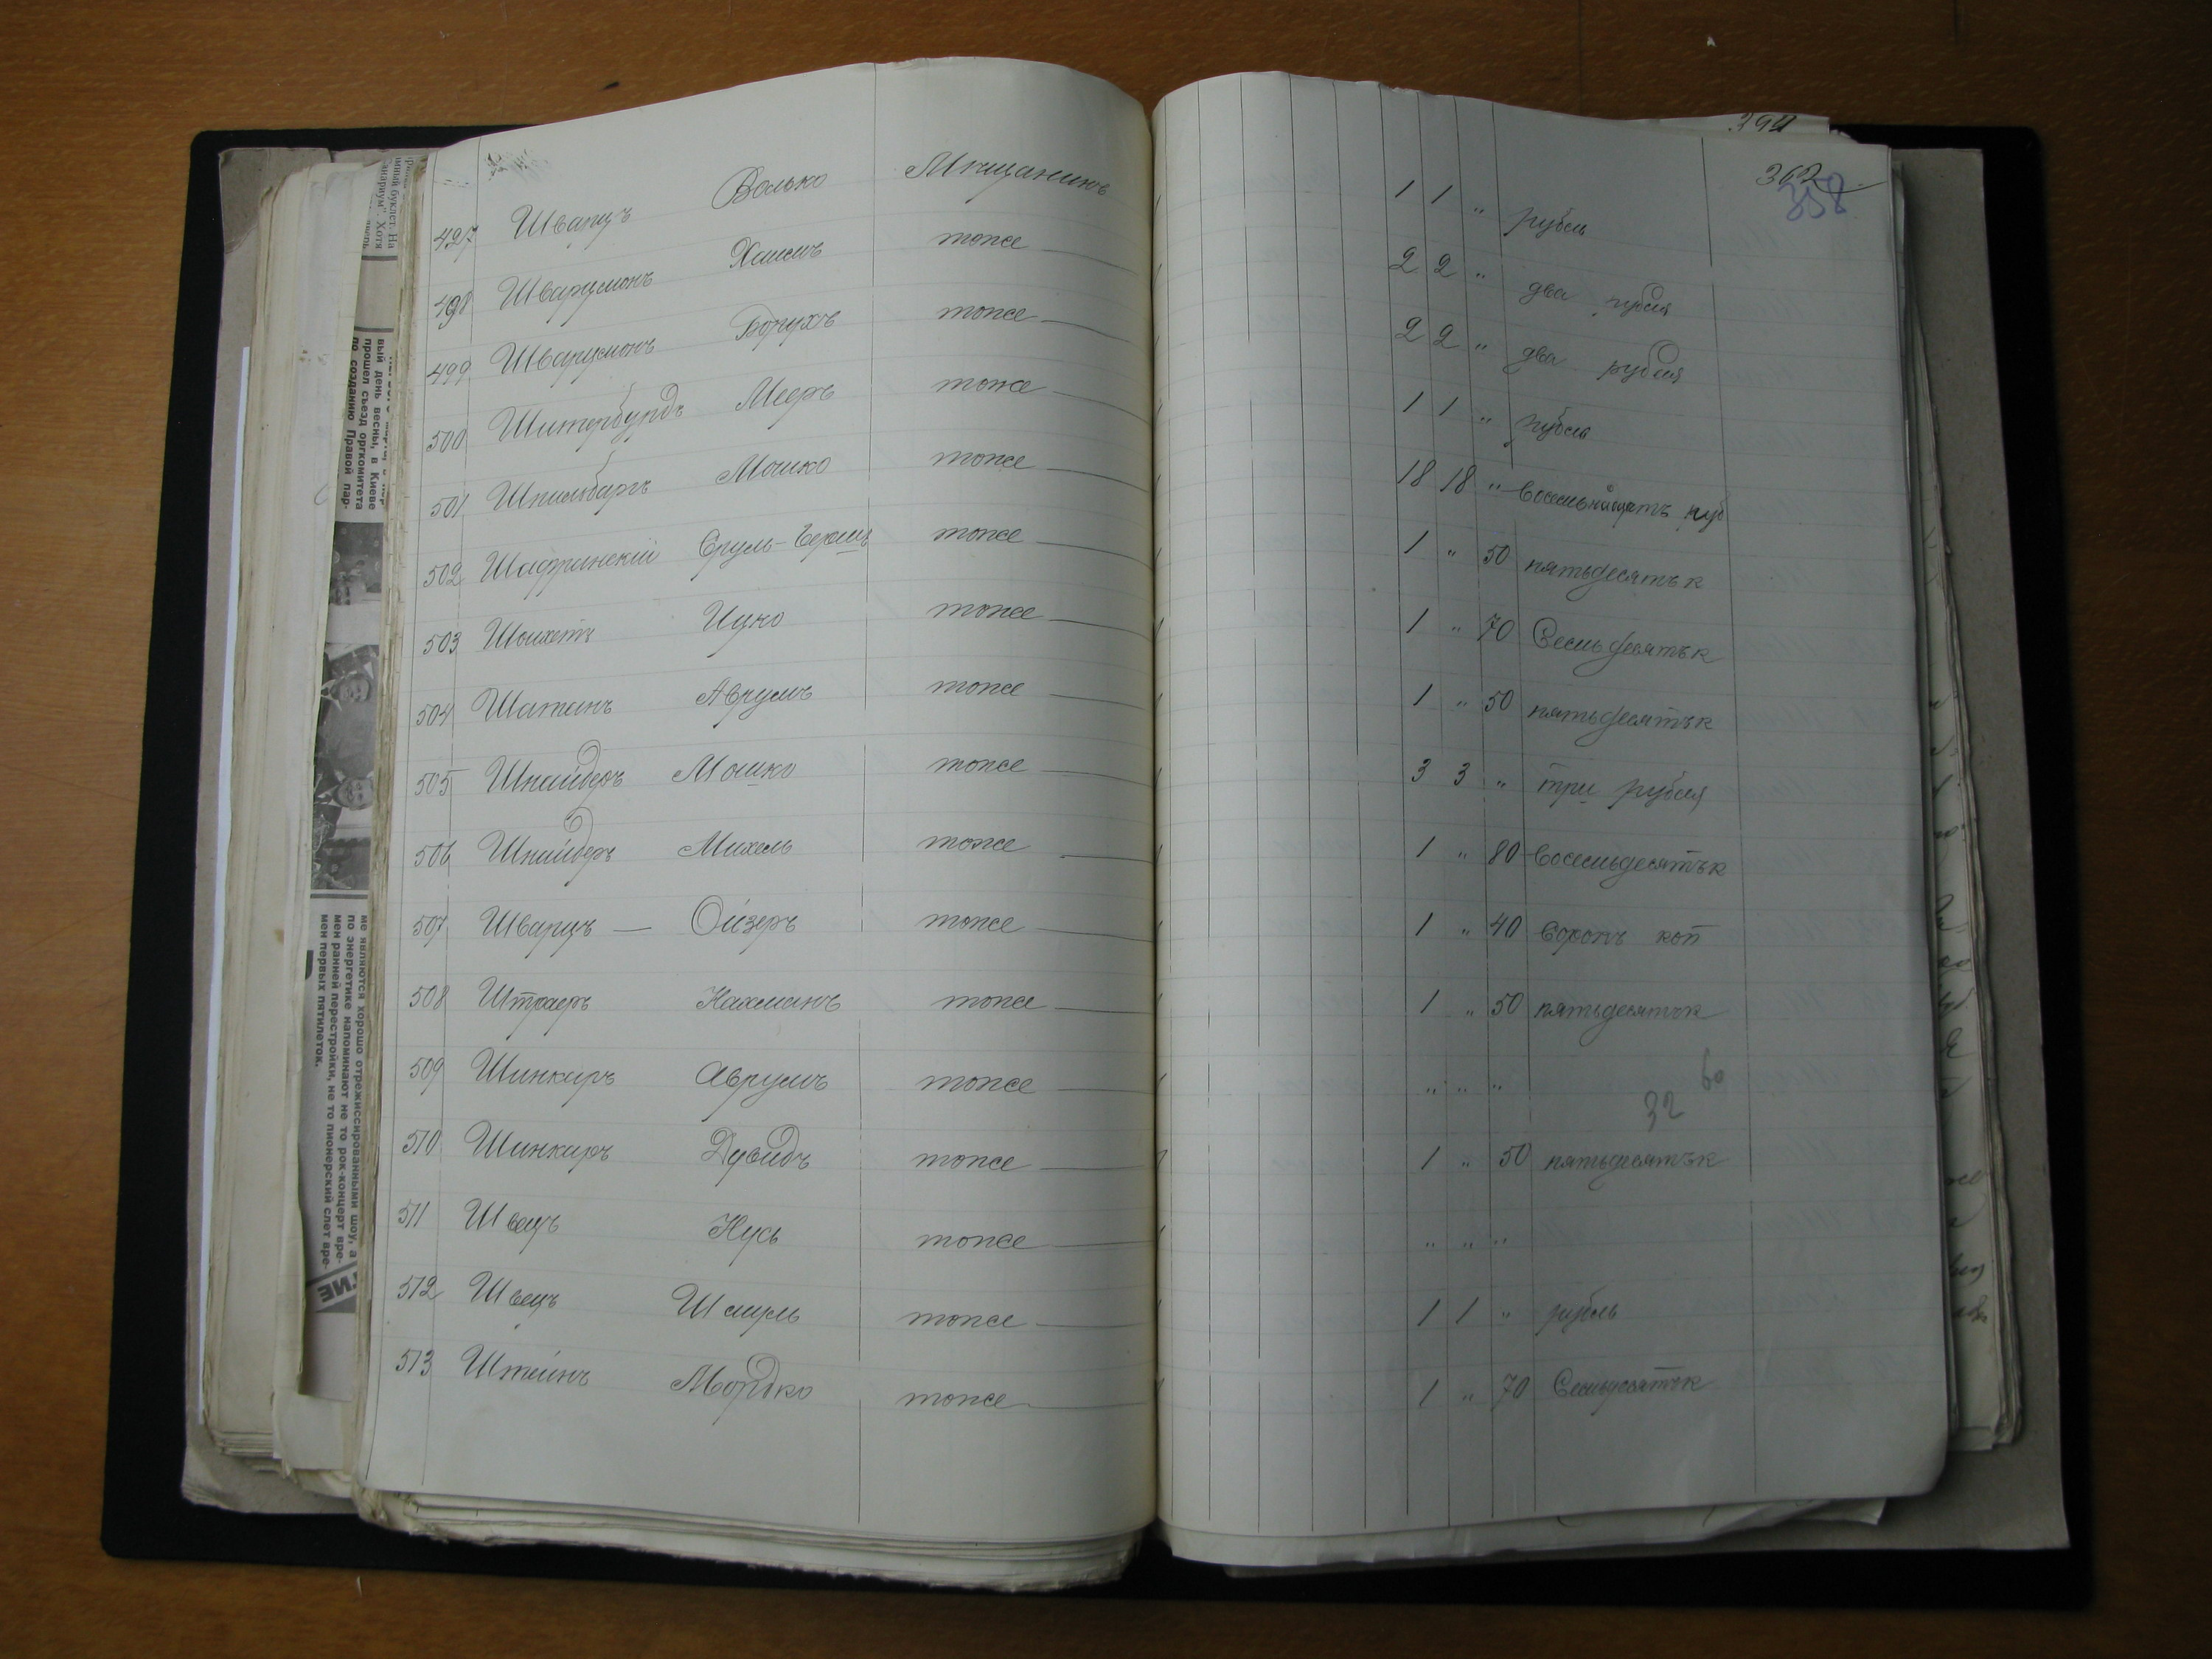 394
362
358
497 Шварцъ Волько Мѣщанинъ 1 1 " рубль
498 Шварцманъ Хаимъ тоже 2 2 " два рубля
499 Шварцманъ Борухъ тоже 2 2 " два рубля
500 Мееръ тоже 1 1 " рубль
501 Шпильбаргъ Мошко тоже 18 18 " восемьнадцать руб
502 Шафринскій Сруль-Бершъ тоже 1 " 50 пятьдесятъ к
503 Шойхетъ Ицко тоже 1 " 70 Семьдесятъ к
504 Шатинъ Аврумъ тоже 1 " 50 пятьдесятъ к
505 Шнайдеръ Мошко тоже 3 3 " три рубля
506 Шнайдеръ Михель тоже 1 " 80 восемьдесятъ к
507 Шварцъ — Ойзеръ тоже 1 " 40 сорокъ коп
508 Нахманъ тоже 1 " 50 пятьдесятъ к
509 Шинкаръ Аврумъ тоже " " "
60
32
510 Шинкаръ Дувидъ тоже 1 " 50 пятьдесятъ к
511 Швецъ Нусь тоже " " "
512 Швецъ Шмуль тоже 1 1 " рубль
513 Штейнъ Мордко тоже 1 " 70 Семьдесятъ к
вый день весны, в Киеве
прошел съезд оргкомитета
по созданию Правой пар-
ме являются хорошо отрежиссированными шоу, а
по энергетике напоминают не то рок-концерт вре-
мен ранней перестройки, не то пионерский слет вре-
мен первых пятилеток.